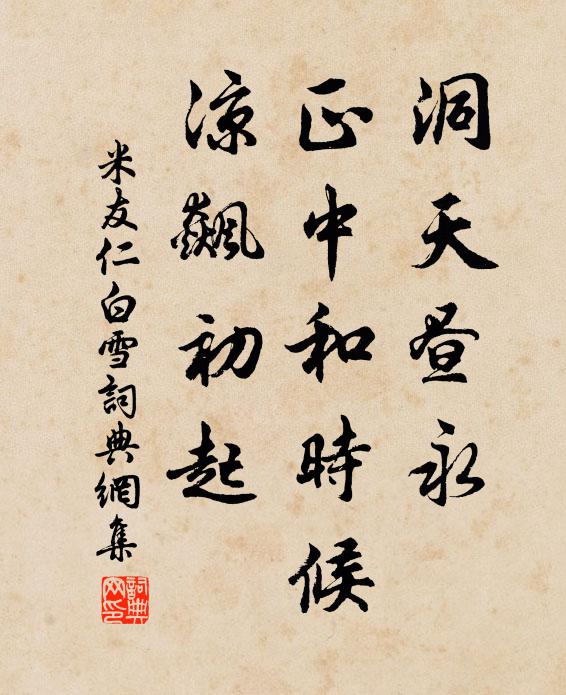 洞天昼永
正中和時候
凉飆初起
米友仁白雪詞典網集
詞典網印